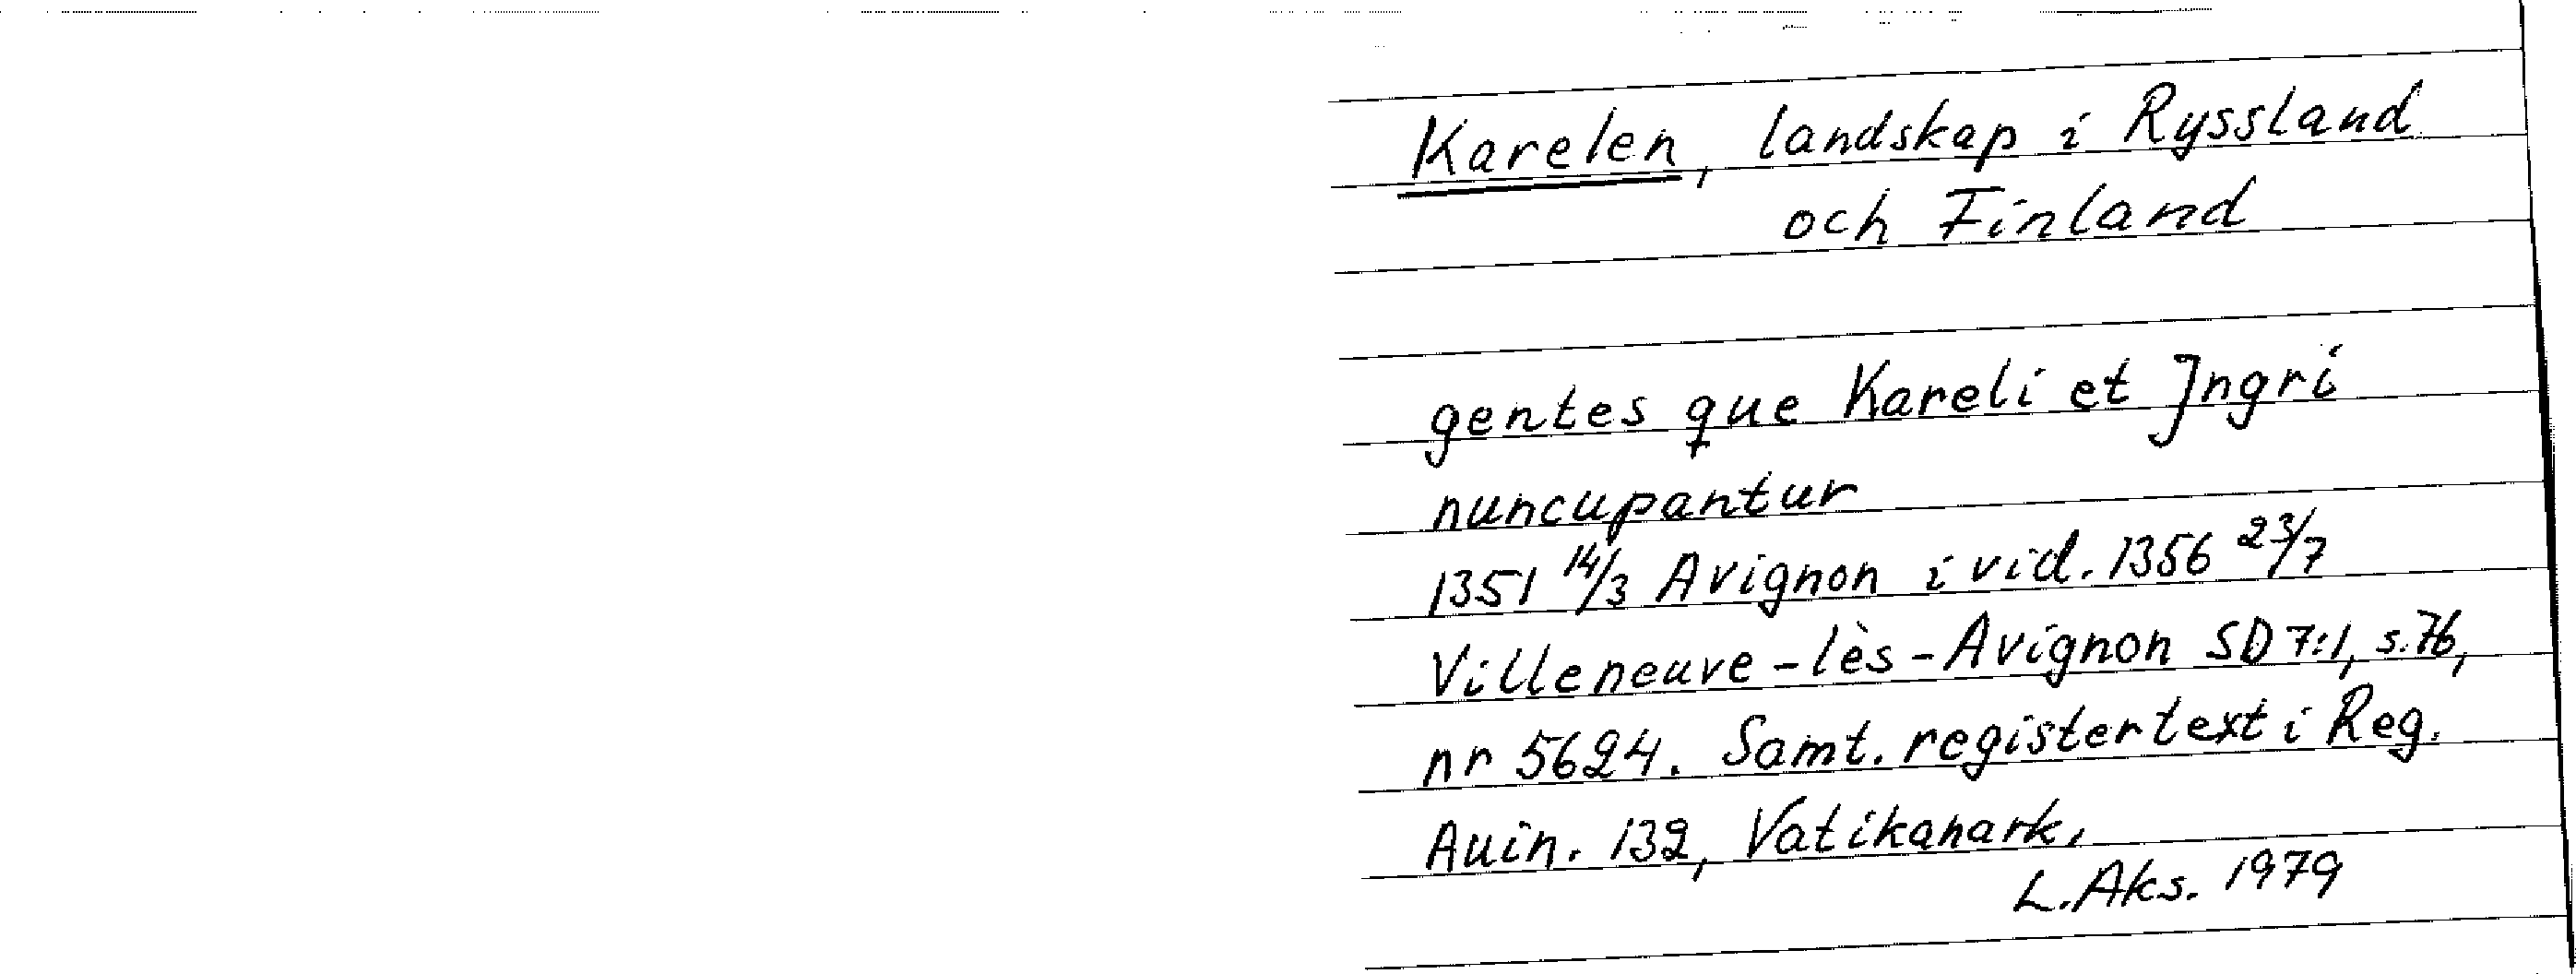 Karelen, landskap i Ryssland
och Finland
gentes que Kareli et Jngri
nuncupantur
1351 14/3 Avignon i vid. 1356 23/7
Villeneuve-lès-Avignon SD 7:1, s. 76,
nr 5624. Samt. registertext i Reg.
Auin. 132, Vatikanark.
L. Aks. 1979